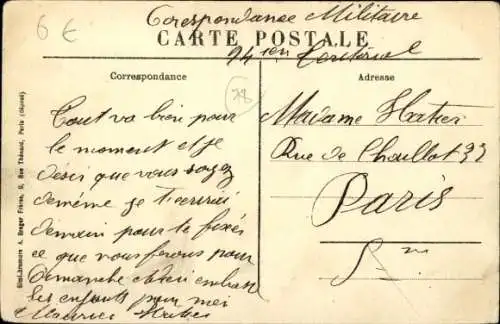 6 €
Corespondance Militaire
CARTE POSTALE
94 ien Teritorial
Correspondance
Adresse
78
Tout va bien pour
le moment et je
désir que vous soyez
de même je t'écrirai
demain pour te fixés
ce que vous ferons pour
Dimanche embrasse
les enfants pour moi
Maurice Hatier
Madame Hatier
Rue de Chaillot 33
Paris
Simi-bromure A. Breger Frères, 9, Rue Thénard, Paris (déposé)